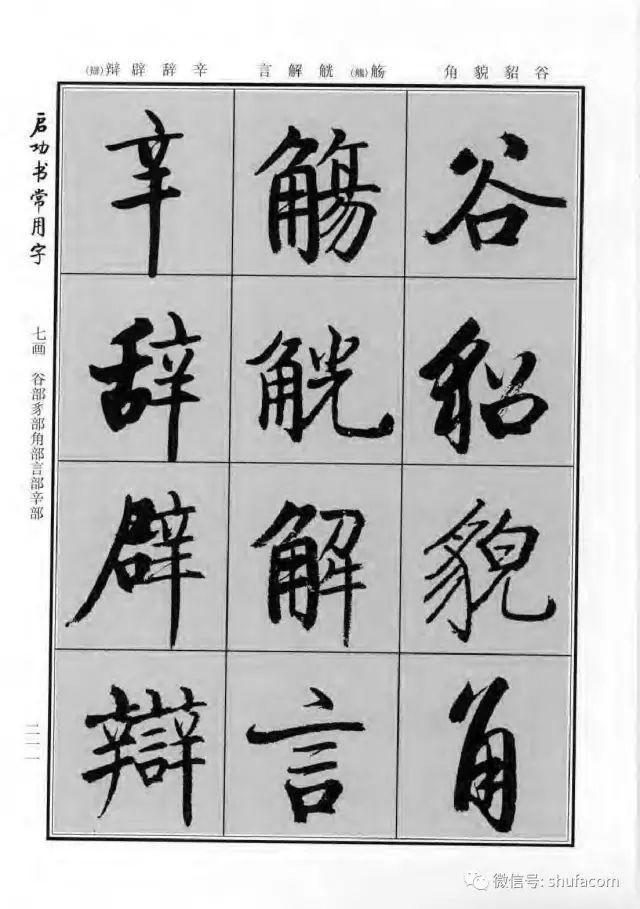 谷貂貌角
觞(觴)觥解言
辛辞辟辩(辯)
谷
貂
貌
角
觴
觥
解
言
辛
辞
辟
辯
启功书常用字
七画 谷部豸部角部言部辛部
二一一
微信号: shufacom